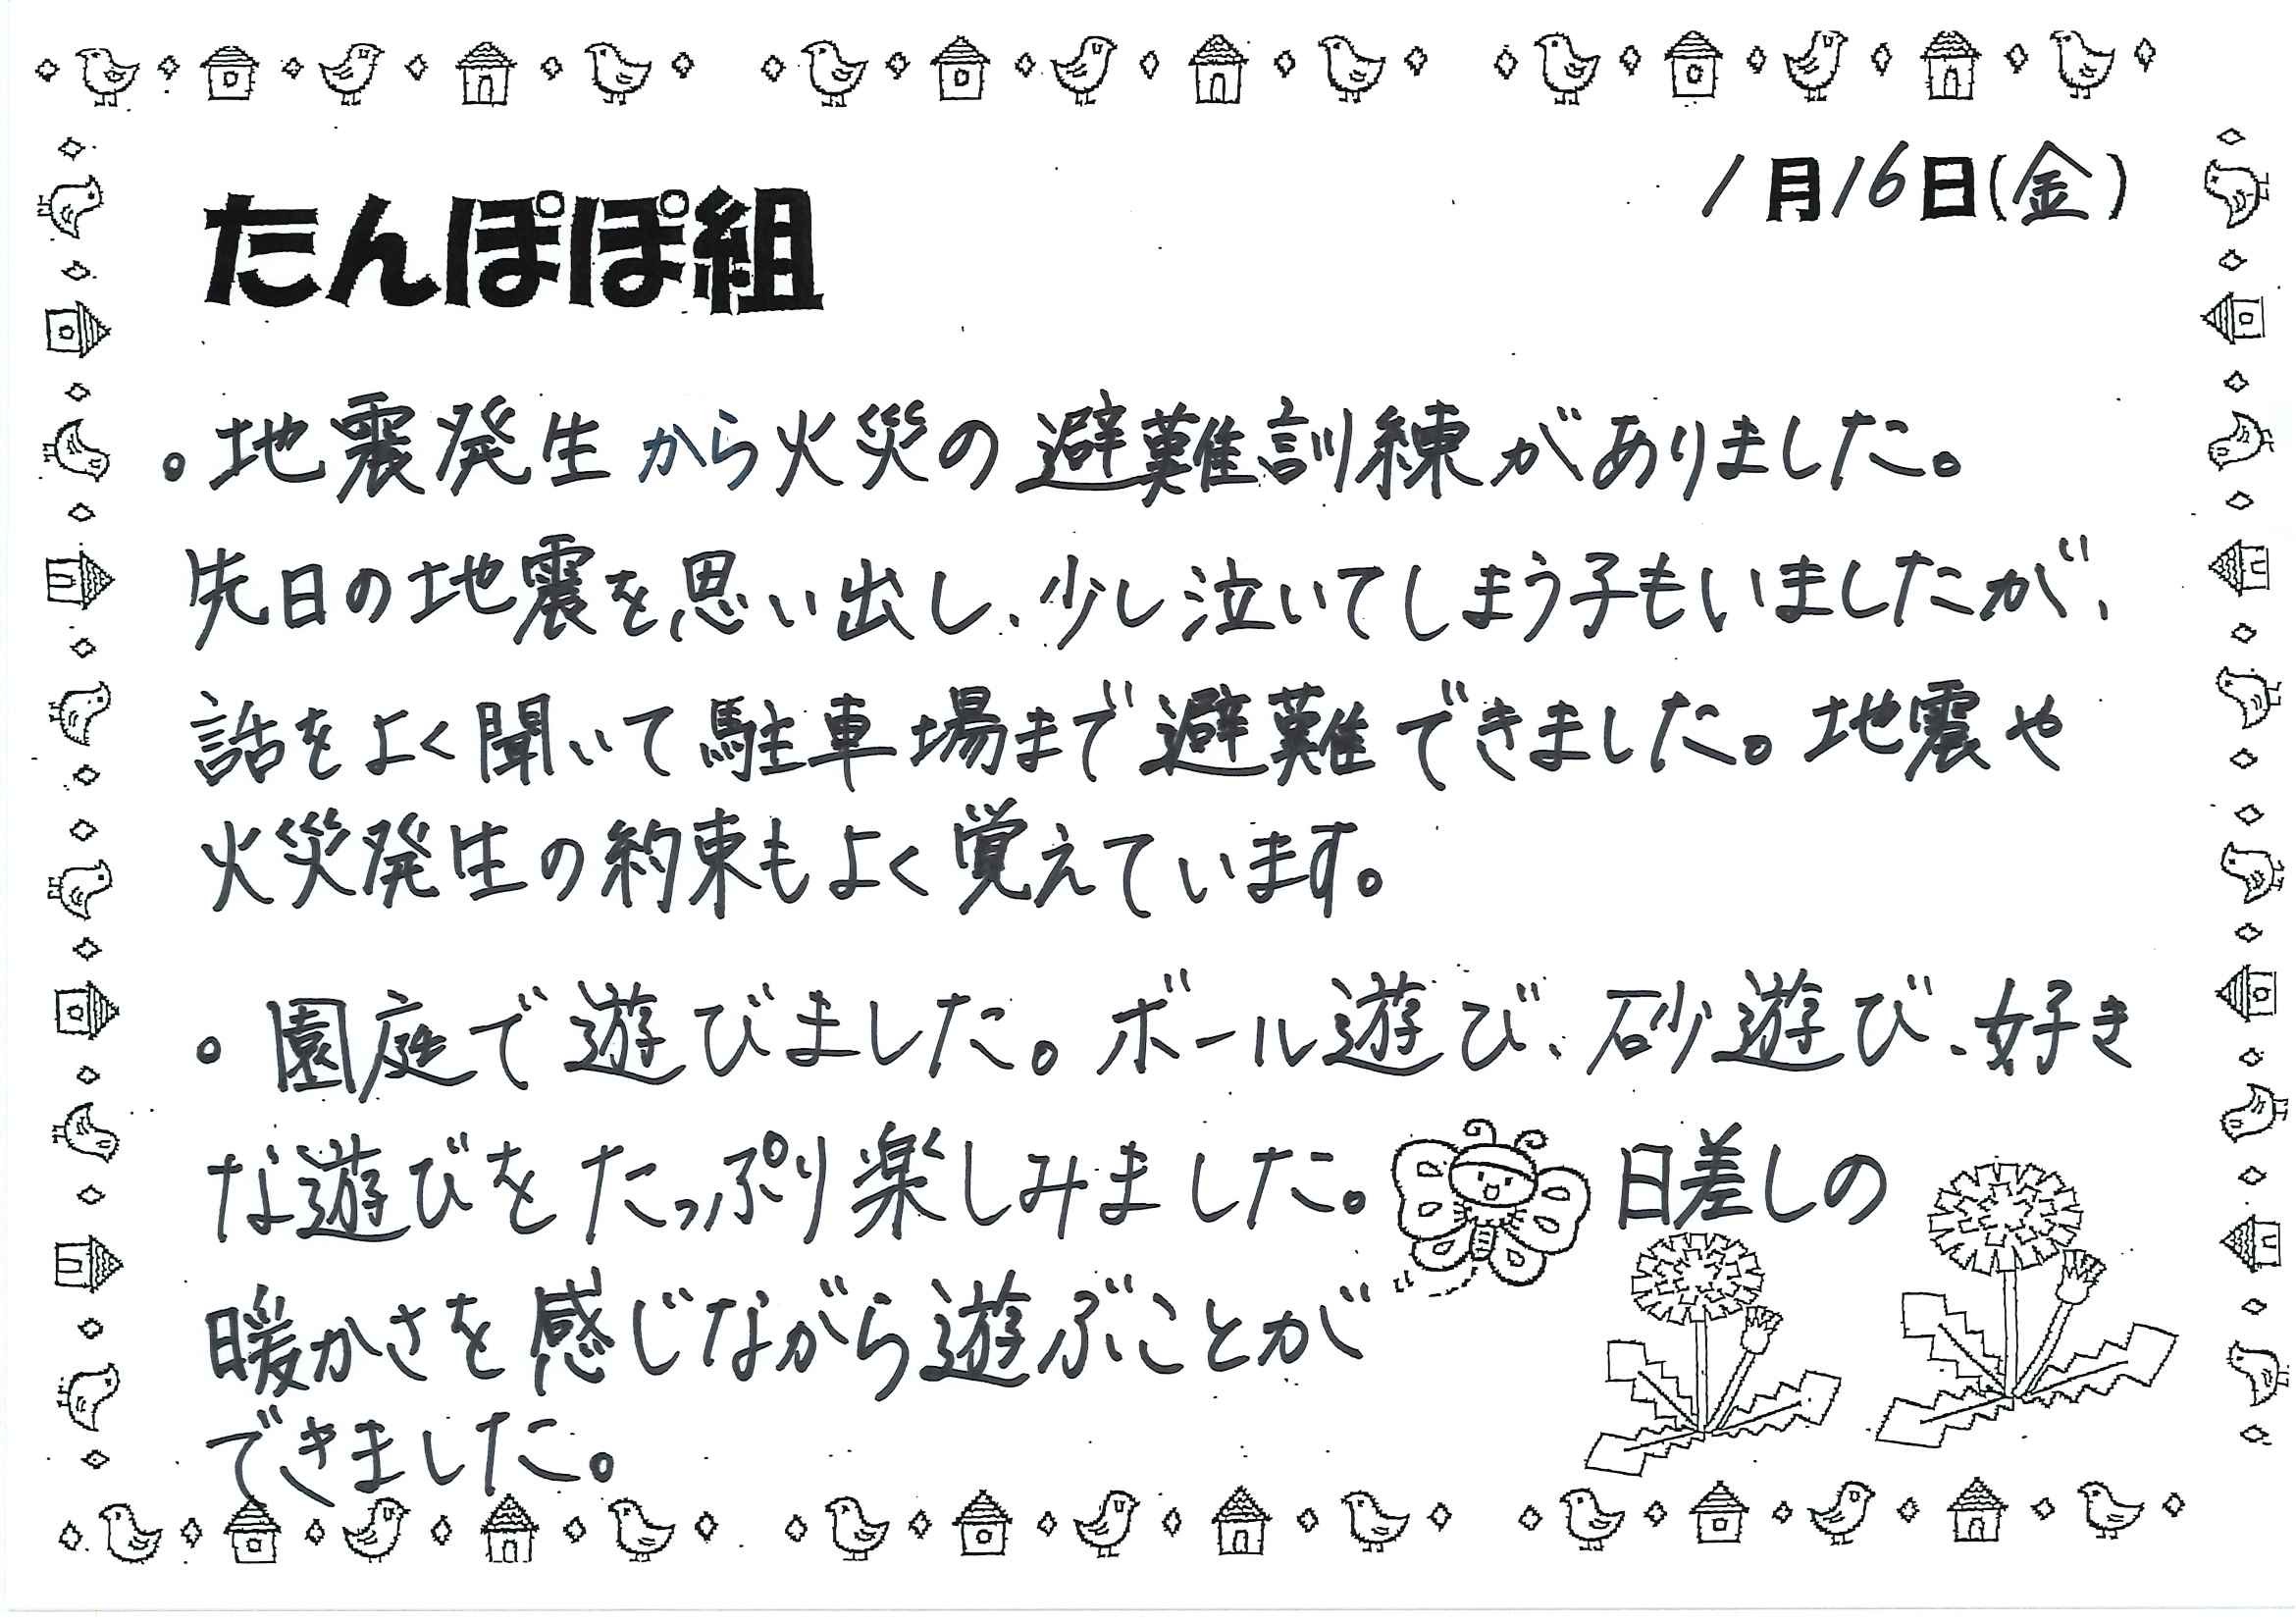 1月16日(金)
たんぽぽ組
。地震発生から火災の避難訓練がありました。
先日の地震を思い出し、少し泣いてしまう子もいましたが、
話をよく聞いて駐車場まで避難できました。地震や
火災発生の約束もよく覚えています。
。園庭で遊びました。ボール遊び、砂遊び、好き
な遊びをたっぷり楽しみました。日差しの
暖かさを感じながら遊ぶことが
できました。